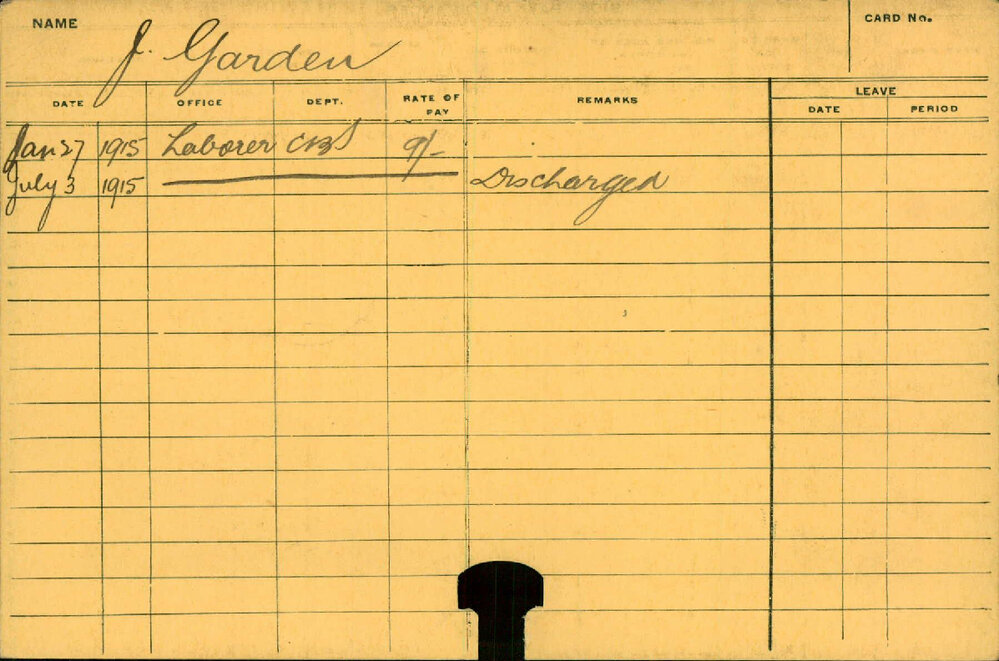 NAME J. Garden CARD No.
LEAVE
DATE OFFICE DEPT. RATE OF PAY REMARKS DATE PERIOD
Jan 27 1915 Laborer 9/-
July 3 1915 Discharged